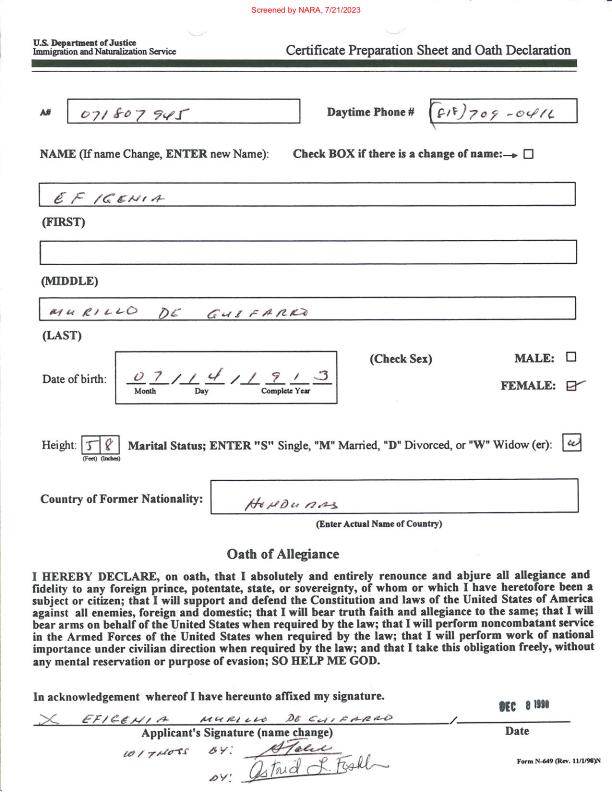 Screened by NARA, 7/21/2023
U.S. Department of Justice
Immigration and Naturalization Service
Certificate Preparation Sheet and Oath Declaration
A# 071807945 Daytime Phone # (818) 709-0416
NAME (If name Change, ENTER new Name): Check BOX if there is a change of name:→
EFIGENIA
(FIRST)
(MIDDLE)
MURILLO DE GUIFARRO
(LAST)
(Check Sex) MALE:
Date of birth: 07/14/1913
Month Day Complete Year
FEMALE:
Height: 5 8 Marital Status; ENTER "S" Single, "M" Married, "D" Divorced, or "W" Widow (er): W
(Feet) (Inches)
Country of Former Nationality: HONDURAS
(Enter Actual Name of Country)
Oath of Allegiance
I HEREBY DECLARE, on oath, that I absolutely and entirely renounce and abjure all allegiance and
fidelity to any foreign prince, potentate, state, or sovereignty, of whom or which I have heretofore been a
subject or citizen; that I will support and defend the Constitution and laws of the United States of America
against all enemies, foreign and domestic; that I will bear truth faith and allegiance to the same; that I will
bear arms on behalf of the United States when required by the law; that I will perform noncombatant service
in the Armed Forces of the United States when required by the law; that I will perform work of national
importance under civilian direction when required by the law; and that I take this obligation freely, without
any mental reservation or purpose of evasion; SO HELP ME GOD.
In acknowledgement whereof I have hereunto affixed my signature.
DEC 8 1998
X EFIGENIA MURILLO DE GUIFARRO /
Applicant's Signature (name change) Date
WITNESS BY:
BY: Astrid L.
Form N-649 (Rev. 11/1/98)N